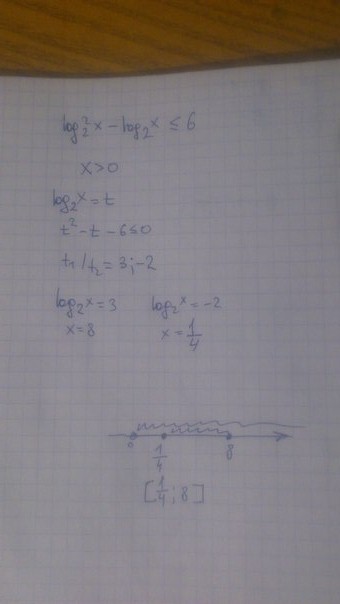 log₂²x - log₂x ≤ 6
x>0
log₂x = t
t² - t - 6 ≤ 0
t₁/t₂ = 3; -2
log₂x = 3 log₂x = -2
x = 8 x = 1/4
0 1/4 8
[1/4; 8]